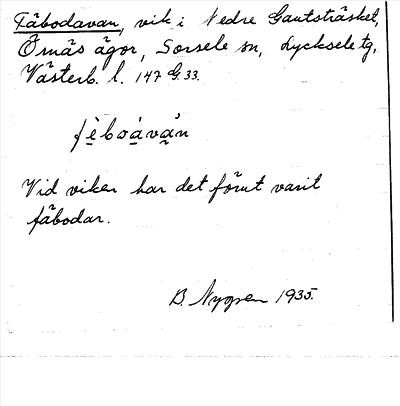 Fäbodavan, vik i Nedre Gautsträsket,
Örnäs ägor, Sorsele sn, Lycksele tg,
Västerb. l. 147 G. 33.
fè̱boa̱va̱ʼn
Vid viken har det förut varit
fäbodar.
B. Nygren 1935.